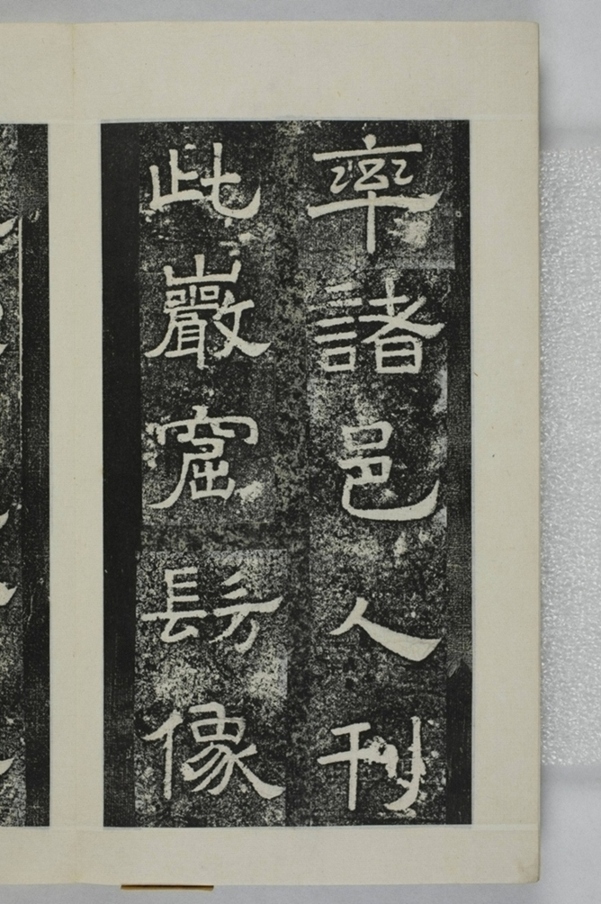 率諸邑人刊
此巖窟髣像